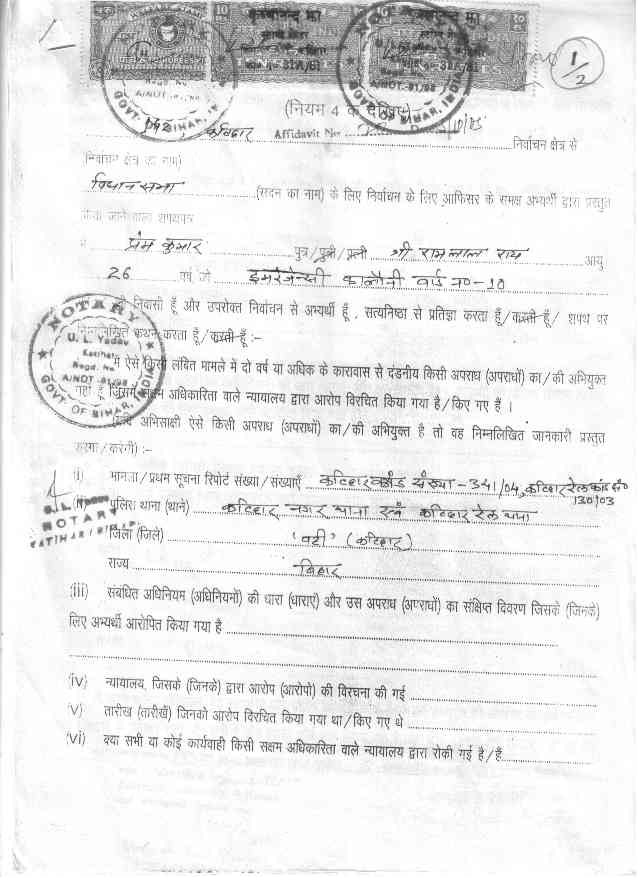 1/2
(नियम 4 क देखिए)
कटिहार Affidavit No /10/05 निर्वाचन क्षेत्र से
(निर्वाचन क्षेत्र का नाम)
विधान सभा (सदन का नाम) के लिए निर्वाचन के लिए आफिसर के समक्ष अभ्यर्थी द्वारा प्रस्तुत
किया जाने वाला शपथपत्र
मैं प्रेम कुमार पुत्र/पुत्री/पत्नी श्री रामलाल राय आयु
26 वर्ष, जो इमरजेन्सी कालौनी वार्ड न०-10
निवासी हूँ और उपरोक्त निर्वाचन से अभ्यर्थी हूँ , सत्यनिष्ठा से प्रतिज्ञा करता हूँ/करती हूँ/ शपथ पर
निम्नलिखित कथन करता हूँ/करती हूँ :-
NOTARY
U. L. Yadav
Katihar
Regd. No.
A/NOT.-91/98
GOVT. OF BIHAR, INDIA
मैं ऐसे किसी लंबित मामले में दो वर्ष या अधिक के कारावास से दंडनीय किसी अपराध (अपराधों) का/की अभियुक्त
नहीं हूँ जिसमें सक्षम अधिकारिता वाले न्यायालय द्वारा आरोप विरचित किया गया है/किए गए हैं ।
अभिसाक्षी ऐसे किसी अपराध (अपराधों) का/की अभियुक्त है तो वह निम्नलिखित जानकारी प्रस्तुत
करेगा/करेगी) :-
(i) मामला/प्रथम सूचना रिपोर्ट संख्या/संख्याएँ कटिहार कांड संख्या - 341/04, कटिहार रेल कांड सं०
130/03
(ii) पुलिस थाना (थाने) कटिहार नगर थाना एवं कटिहार रेल थाना
NOTARY
KATIHAR (BIHAR)
जिला (जिले) 'वही' (कटिहार)
राज्य बिहार
(iii) संबंधित अधिनियम (अधिनियमों) की धारा (धाराएं) और उस अपराध (अपराधों) का संक्षिप्त विवरण जिसके (जिनके)
लिए अभ्यर्थी आरोपित किया गया है
(iv) न्यायालय, जिसके (जिनके) द्वारा आरोप (आरोपों) की विरचना की गई
(v) तारीख (तारीखें) जिनको आरोप विरचित किया गया था/किए गए थे
(vi) क्या सभी या कोई कार्यवाही किसी सक्षम अधिकारिता वाले न्यायालय द्वारा रोकी गई है/हैं